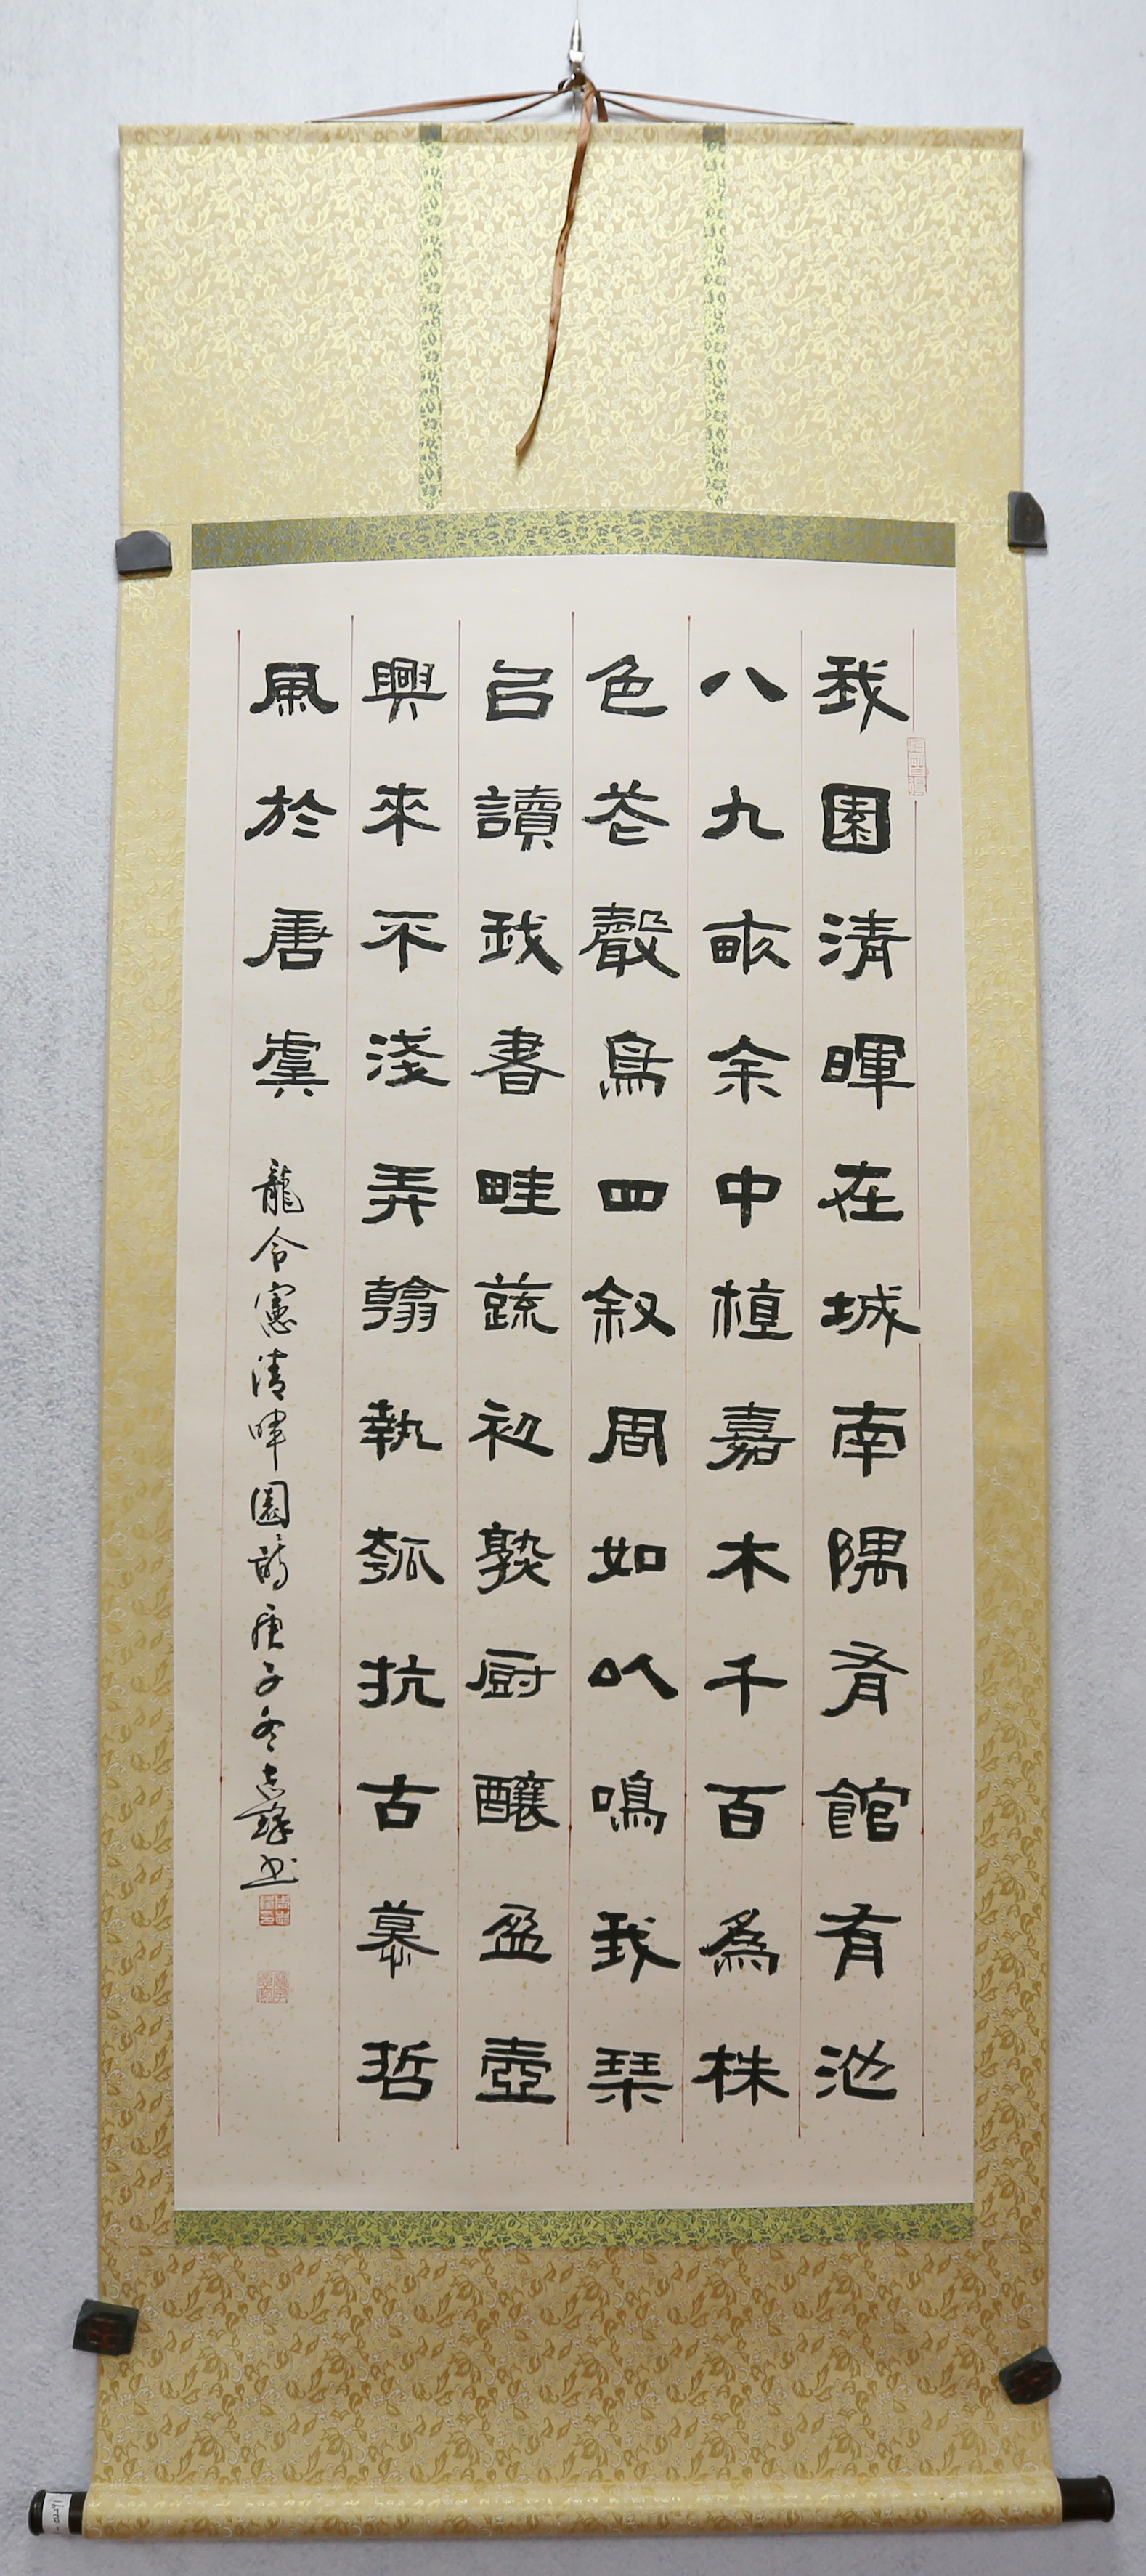 我園清暉在城南隅有館有池
八九畝余中植嘉木千百為株
色花聲鳥四叙周如以鳴我琴
以讀我書畦蔬初熟厨釀盈壺
興來不淺弄翰執瓠抗古慕哲
風於唐虞 龍令憲清暉園詩庚子冬志鋒書